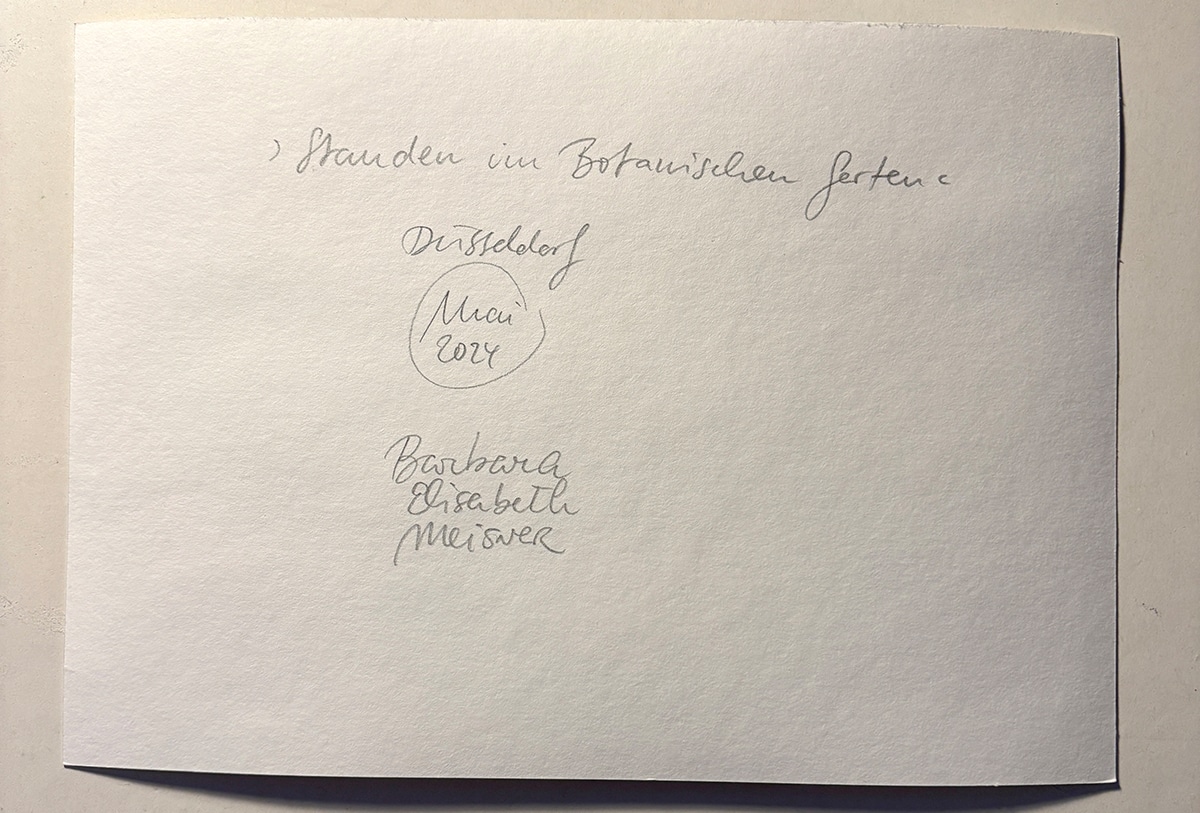 › Stauden im Botanischen Garten ‹
Düsseldorf
Mai
2024
Barbara
Elisabeth
Meisner